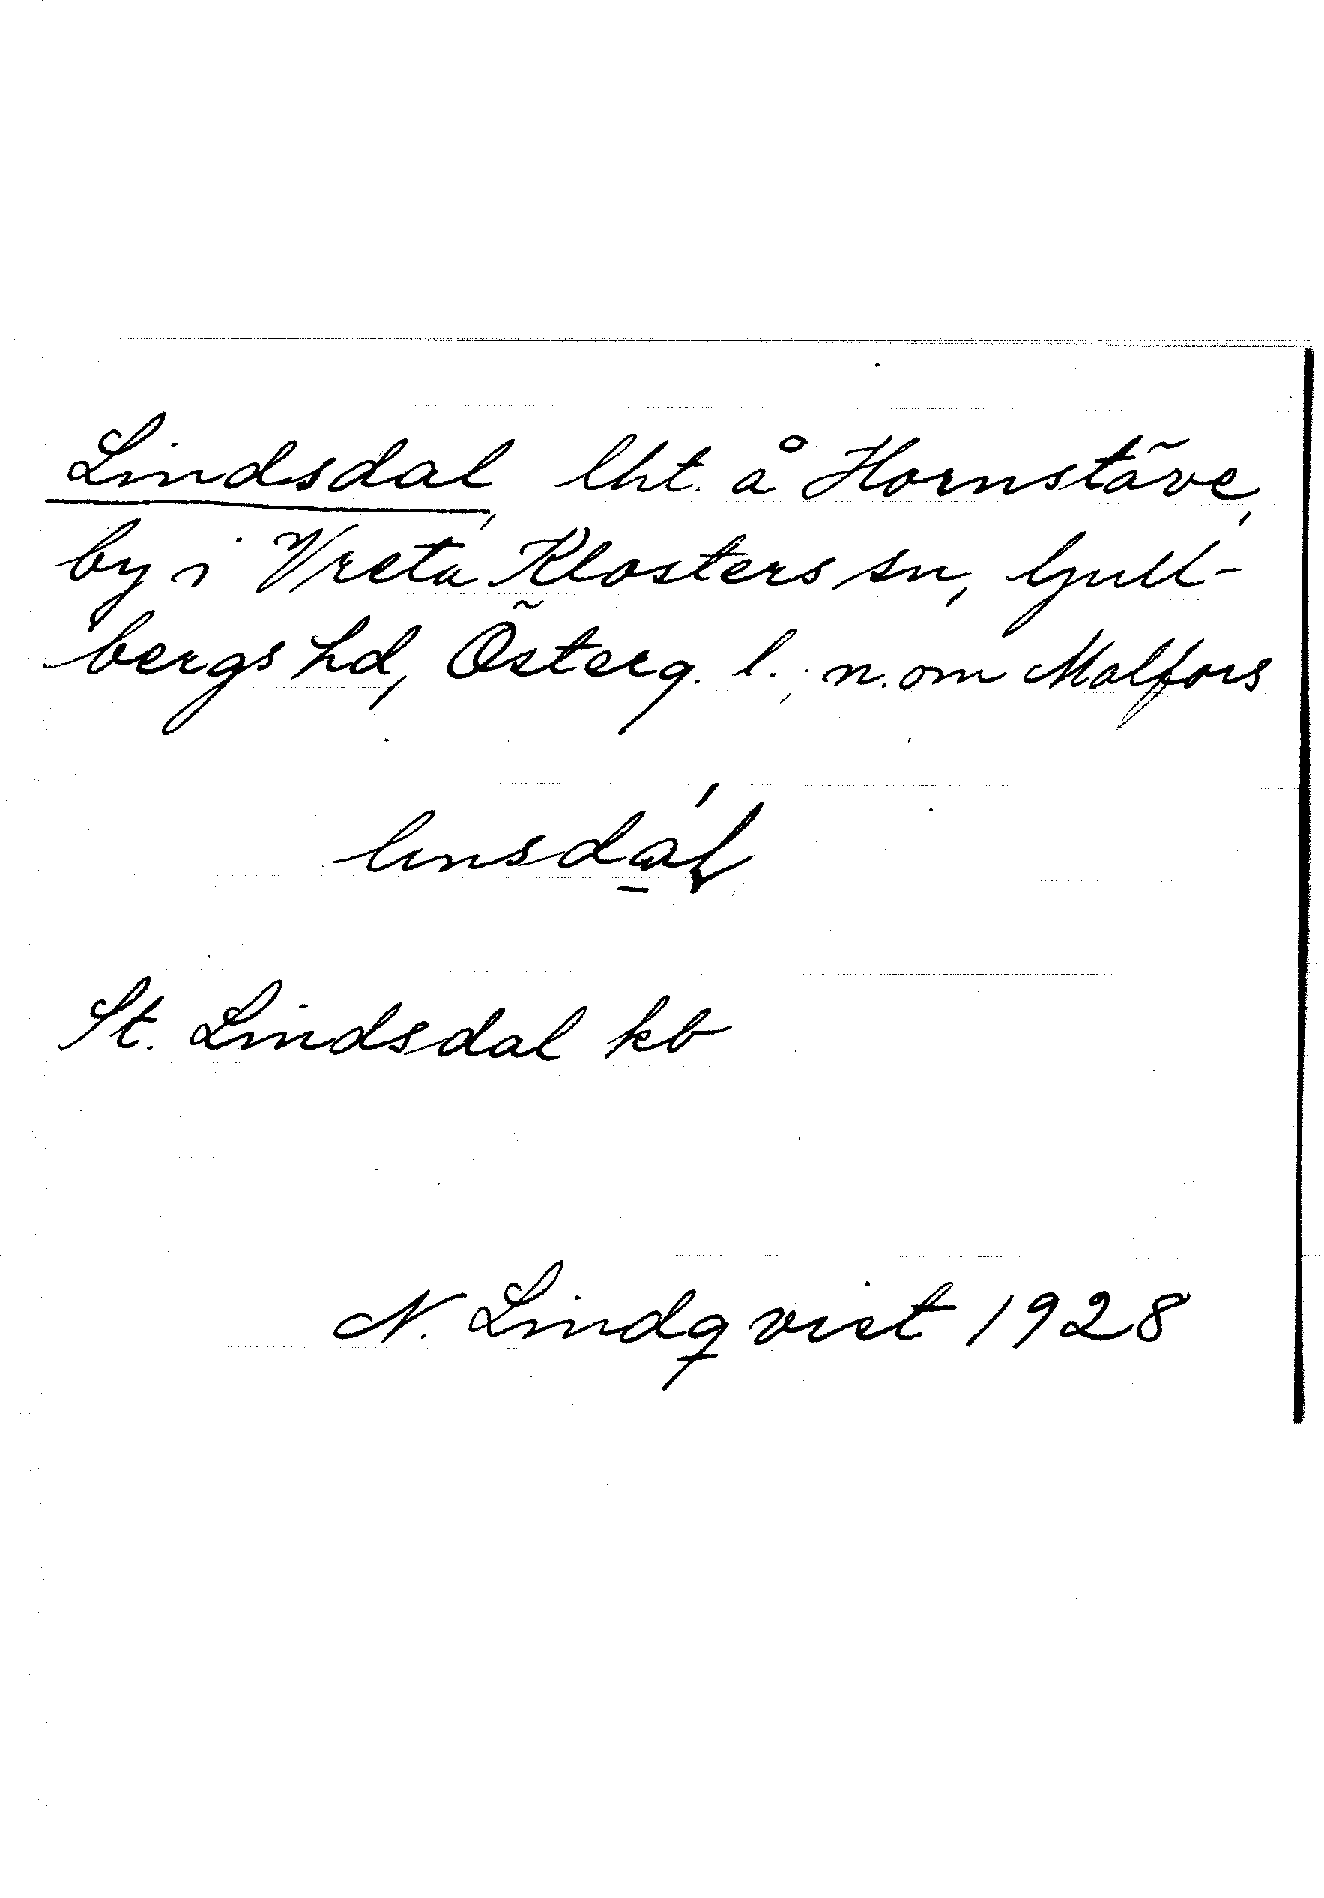 Lindsdal, lht. å Hornstäve,
by i Vreta Klosters sn, Gull-
bergs hd, Österg. l.; n. om Malfors
linsdál
St. Lindsdal kb
N. Lindqvist 1928